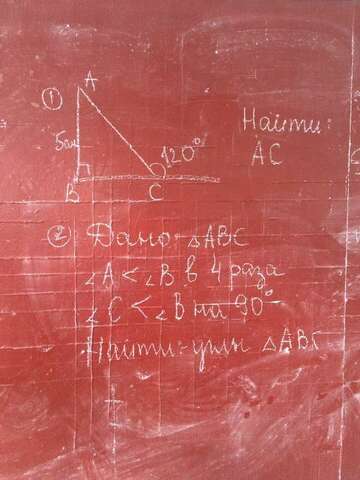 ① A
5см
120°
B
C
Найти:
AC
② Дано: △ABC
∠A < ∠B в 4 раза
∠C < ∠B на 90°
Найти: углы △ABC